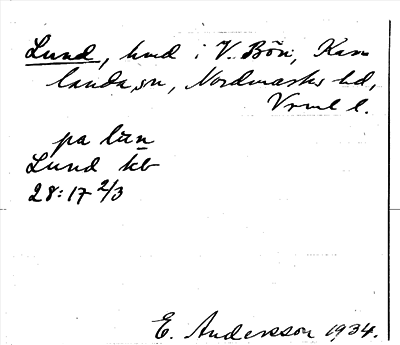 Lund, hmd i V. Bön, Kar-
landa sn, Nordmarks hd,
Vrml l.
pa lun
Lund kb
28:17 2/3
E. Andersson 1934.